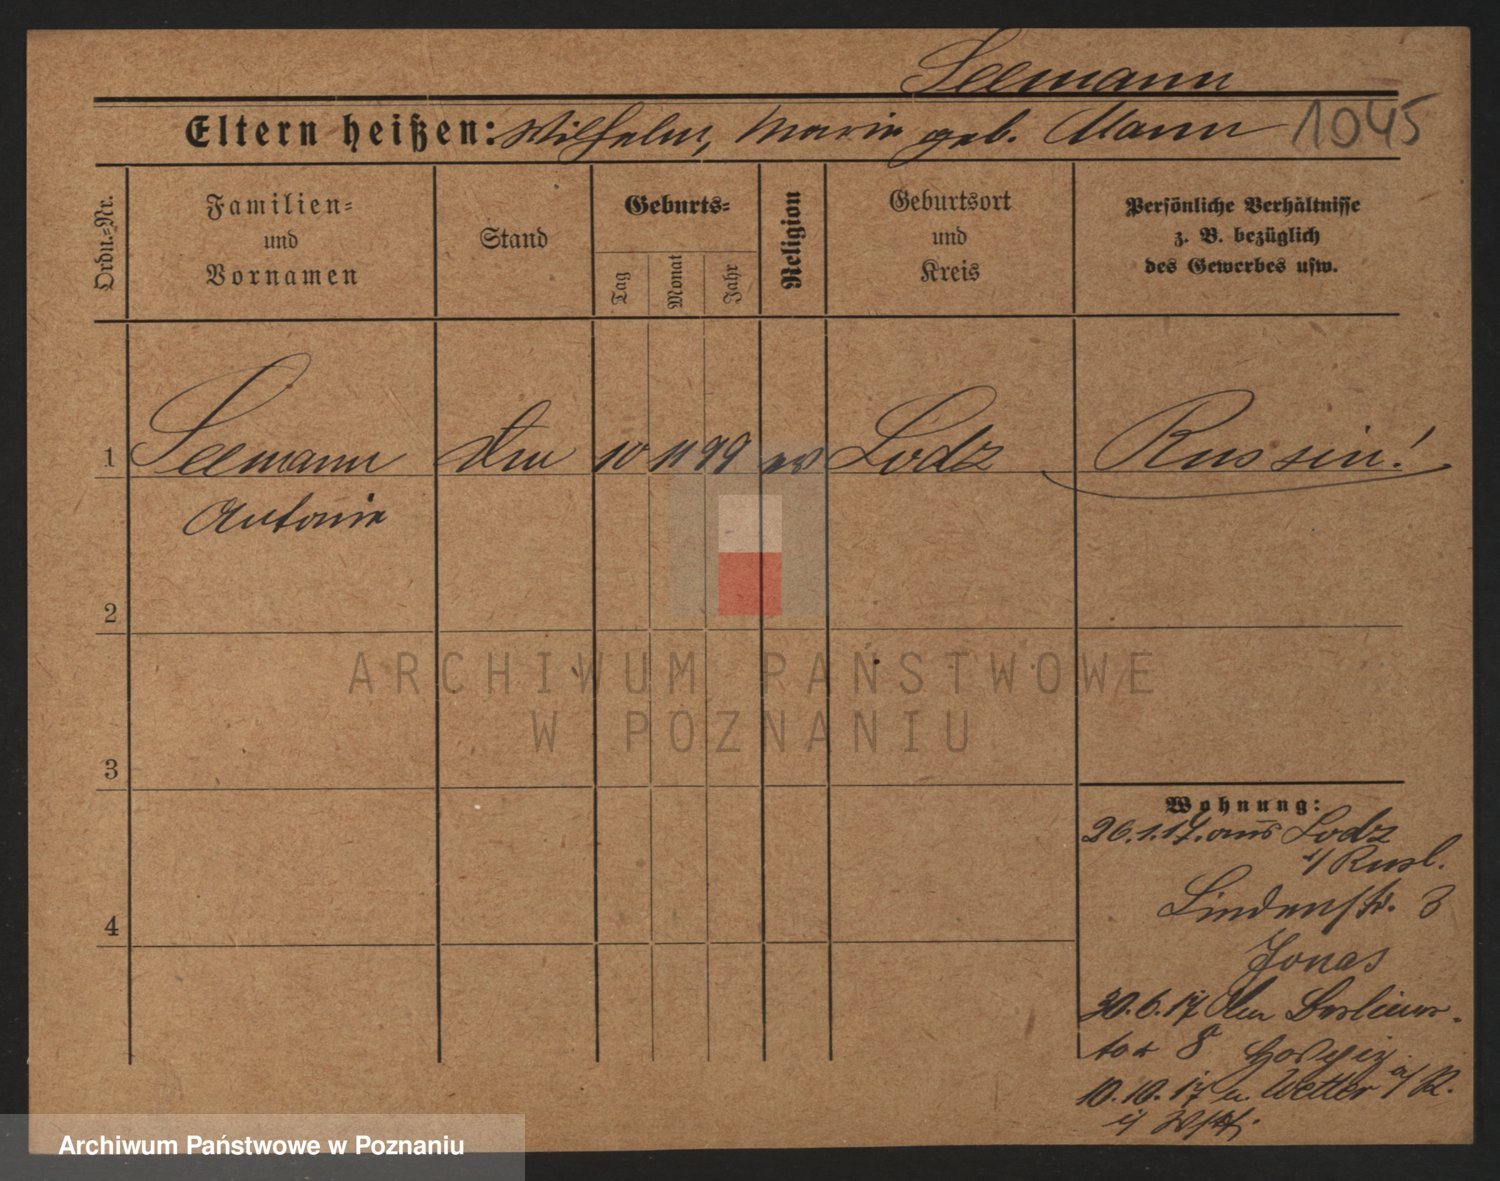 Seemann
Eltern heißen: Wilhelm, Marie geb. Mann 1045
Ordn.-Nr.
Familien-
und
Vornamen
Stand
Geburts-
Tag
Monat
Jahr
Religion
Geburtsort
und
Kreis
Persönliche Verhältnisse
z. B. bezüglich
des Gewerbes usw.
1 Seemann 10 11 99 ev Lodz Russin!
Antonie
2
3
4
ARCHIWUM PAŃSTWOWE
W POZNANIU
Wohnung:
26.1.17. aus Lodz
i/ Rusl.
Lindenstr. 3
Jonas
30.6.17 Berliner-
tor 8
10.10.17 n. Wetter a/ R.
i/ Wstf.
Archiwum Państwowe w Poznaniu